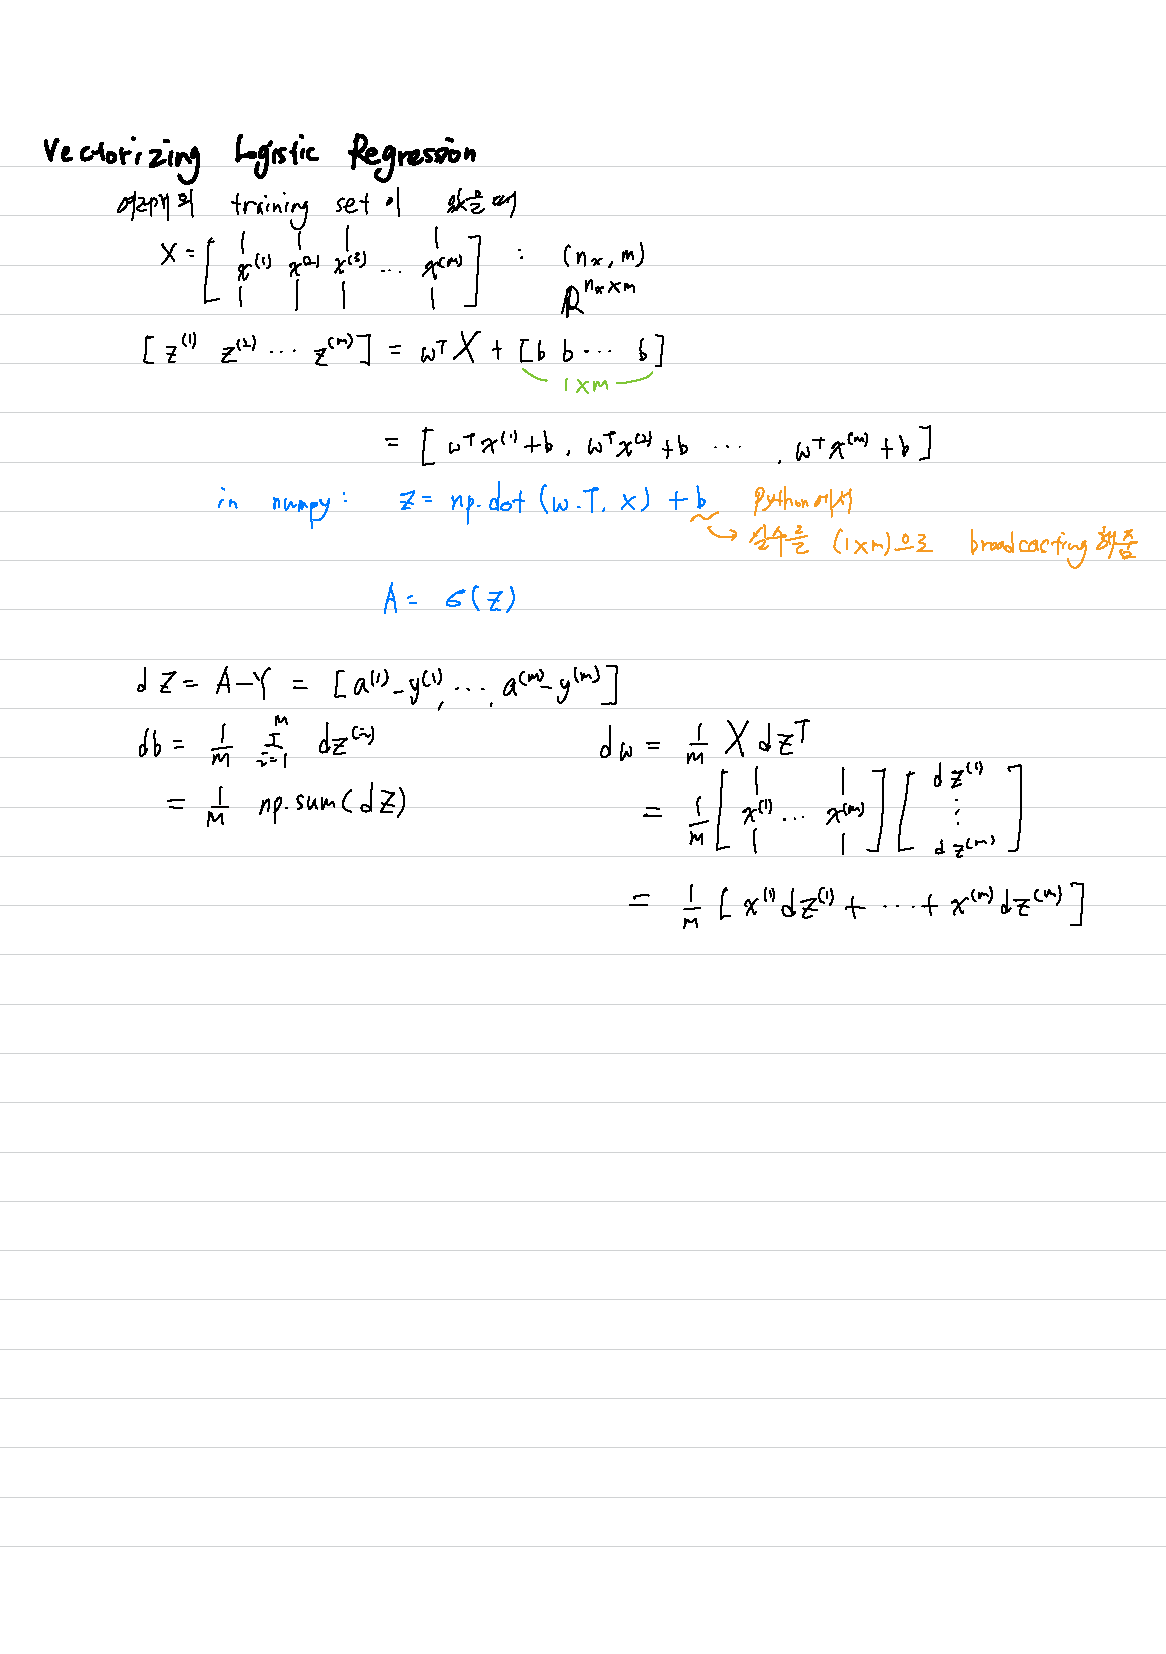 Vectorizing Logistic Regression
여러개의 training set이 있을때
X = [ x⁽¹⁾ x⁽²⁾ x⁽³⁾ ... x⁽ᵐ⁾ ] : (nₓ, m)
ℝ^(nₓ×m)
[ z⁽¹⁾ z⁽²⁾ ... z⁽ᵐ⁾ ] = wᵀX + [b b ... b]
1×m
= [ wᵀx⁽¹⁾+b, wᵀx⁽²⁾+b ... , wᵀx⁽ᵐ⁾+b ]
in numpy: Z = np.dot(w.T, X) + b Python에서
→ 실수를 (1×m)으로 broadcacting 해줌
A = σ(Z)
dZ = A-Y = [a⁽¹⁾-y⁽¹⁾, ..., a⁽ᵐ⁾-y⁽ᵐ⁾]
db = 1/m Σᵢ₌₁ᵐ dz⁽ⁱ⁾
= 1/m np.sum(dZ)
dw = 1/m X dZᵀ
= 1/m [ x⁽¹⁾ ... x⁽ᵐ⁾ ] [ dz⁽¹⁾ ⋮ dz⁽ᵐ⁾ ]
= 1/m [ x⁽¹⁾dz⁽¹⁾ + ... + x⁽ᵐ⁾dz⁽ᵐ⁾ ]